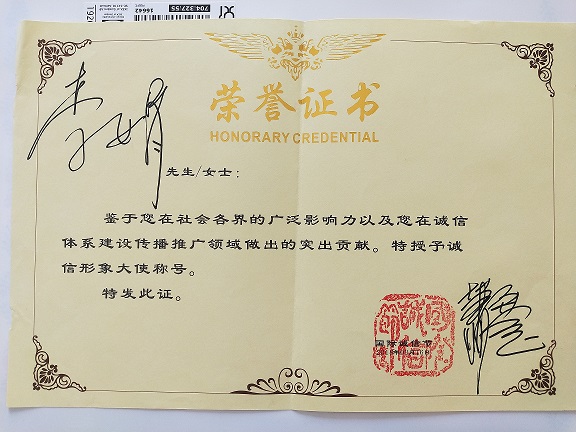 704.327.55
16642
荣誉证书
HONORARY CREDENTIAL
李娟
先生/女士：
鉴于您在社会各界的广泛影响力以及您在诚信
体系建设传播推广领域做出的突出贡献。特授予诚
信形象大使称号。
特发此证。
国际诚信节